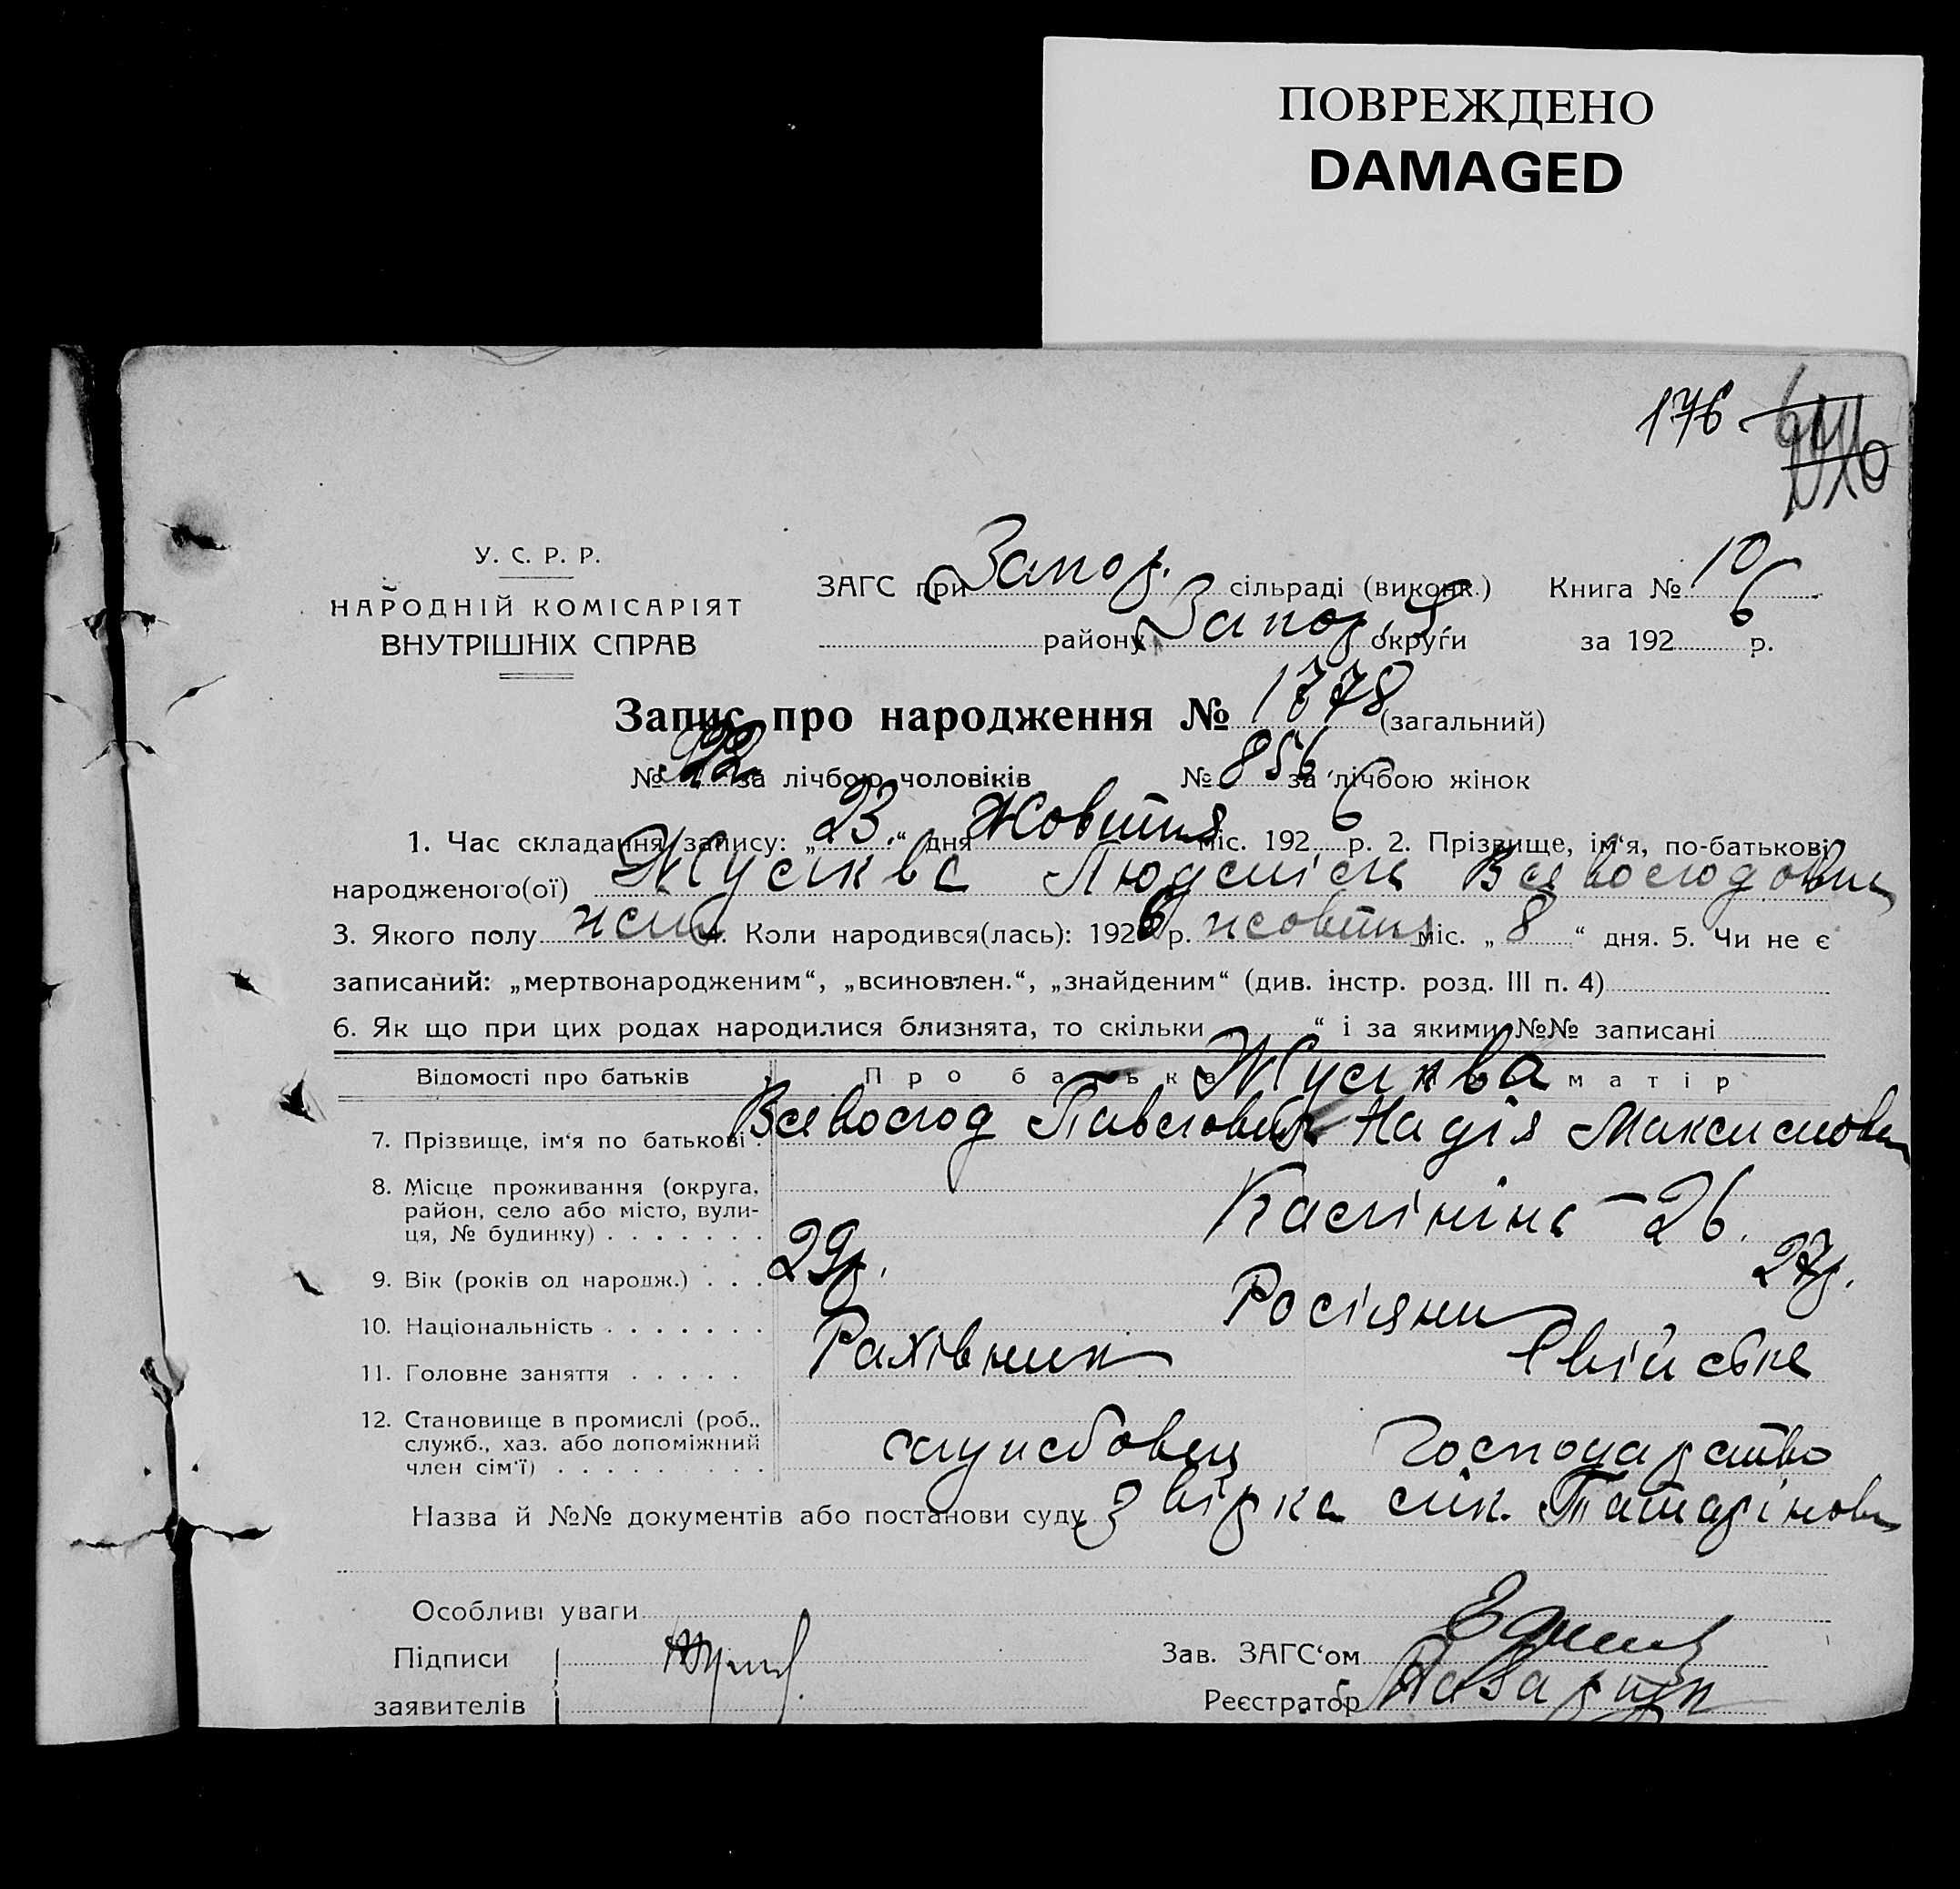 ПОВРЕЖДЕНО
DAMAGED
176
У. С. Р. Р.
НАРОДНІЙ КОМІСАРІЯТ
ВНУТРІШНІХ СПРАВ
ЗАГС при Запор. сільраді (виконк.) Книга № 10
району Запор. округи за 1926 р.
Запис про народження № 1778 (загальний)
№ за лічбою чоловіків № 856 за лічбою жінок
1. Час складання запису: „23“ дня Жовтня міс. 1926 р. 2. Прізвище, ім‘я, по-батькові
народженого(ої) Людміла Всеволодовна
3. Якого полу жін. 4. Коли народився(лась): 1926 р. жовтня міс. „8“ дня. 5. Чи не є
записаний: „мертвонародженим“, „всиновлен.“, „знайденим“ (див. інстр. розд. III п. 4)
6. Як що при цих родах народилися близнята, то скільки „ “ і за якими №№ записані
Відомості про батьків Про батька матір
7. Прізвище, ім‘я по батькові Всеволод Павлович Надія Максимовна
8. Місце проживання (округа,
район, село або місто, вули-
ця, № будинку) Калініна - 26.
9. Вік (років од народж.) 29р. 27р.
10. Національність Росіяни
11. Головне заняття Рахівник Свійське
12. Становище в промислі (роб.,
служб., хаз. або допоміжний
член сім‘ї) службовец Господарство
Назва й №№ документів або постанови суду Звірка лік. Татарінови
Особливі уваги
Підписи
заявителів
Зав. ЗАГС‘ом
Реєстратор